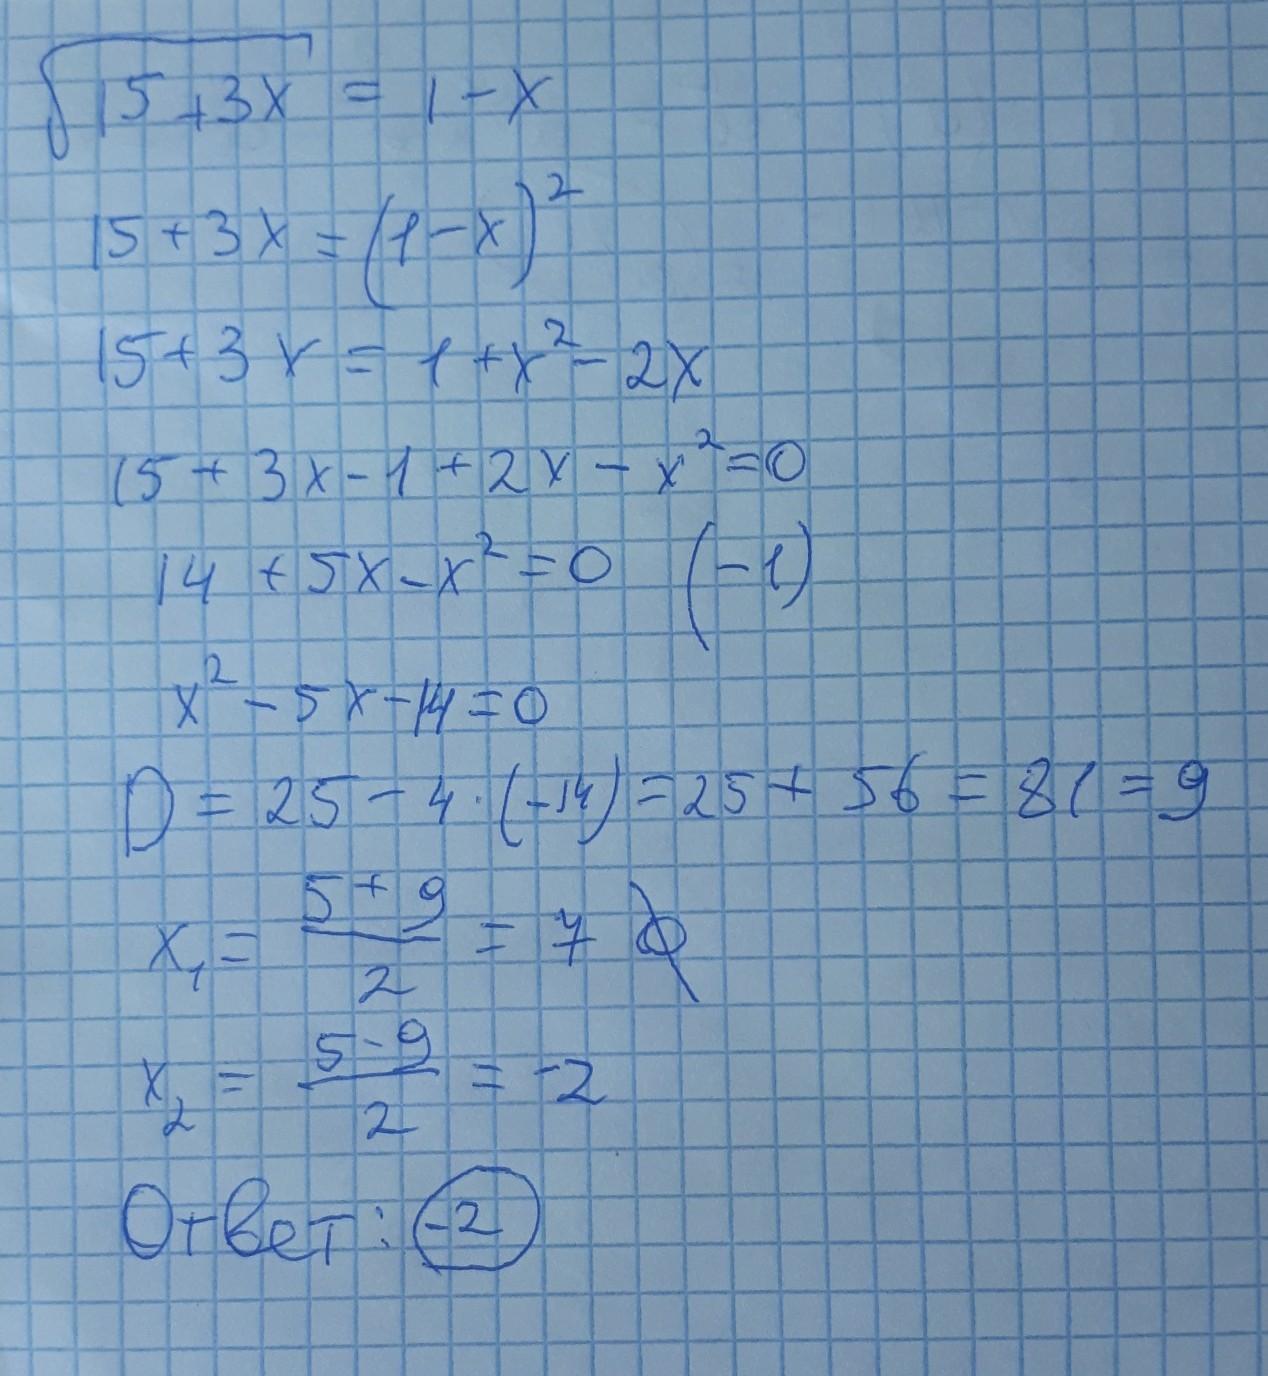 √(15+3x) = 1-x
15+3x=(1-x)²
15+3x = 1+x²-2x
15+3x-1+2x-x²=0
14+5x-x²=0 (-1)
x²-5x-14=0
D=25-4·(-14)=25+56=81=9
x₁ = (5+9)/2 = 7 ∅
x₂ = (5-9)/2 = -2
Ответ: -2